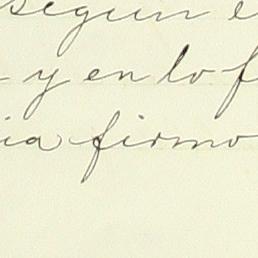 segun e
y en lo f
ia firmo